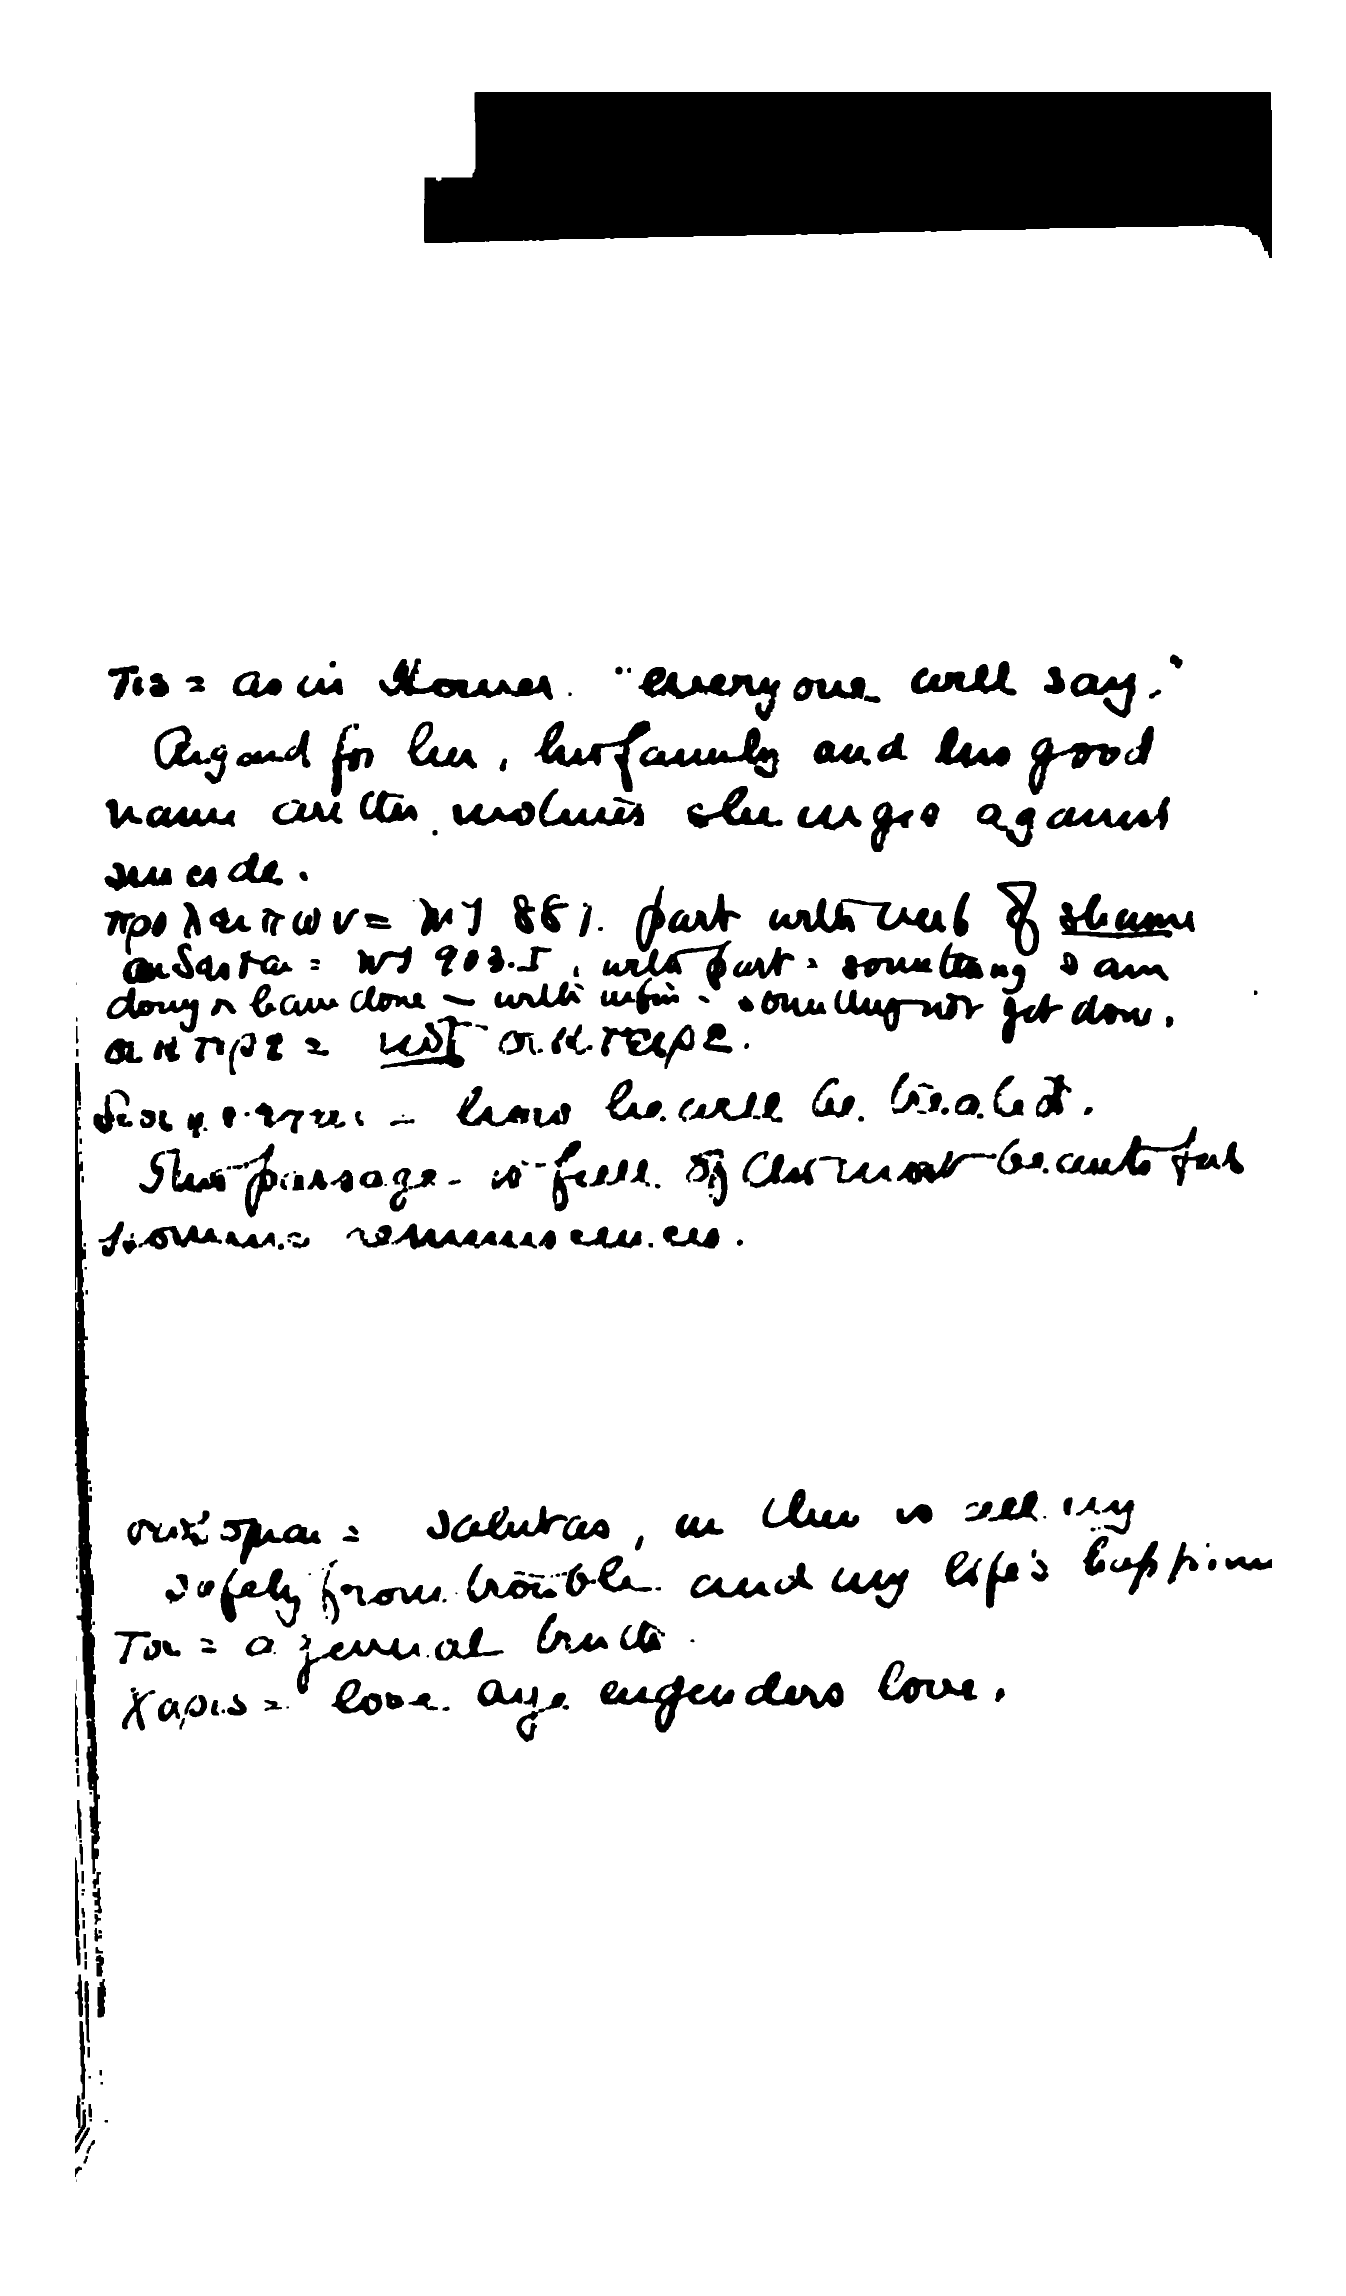 τις = as in Homer. "everyone will say."
Regard for her, his family and his good
name are the motives she urges against
suicide.
προλειπων = WS 881. part with verb of shame
αιδεισθαι = WS 903.I, with part = something I am
doing or have done — with infin = something not yet done.
οικτιρε = not οικτειρε.
– how he will be treated.
This passage is full of the most beautiful
Homeric reminiscences.
= salutas, in thee is all my
safety from trouble and my life's happiness
τοι = a general truth.
χαρις = love aye engenders love.